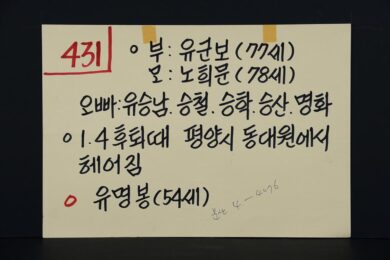 431
○ 부: 유군보(77세)
모: 노희문(78세)
오빠: 유승남. 승철. 승학. 승산. 명화
○ 1.4후퇴때 평양시 동대원에서
헤어짐
○ 유명봉(54세)
4-4076